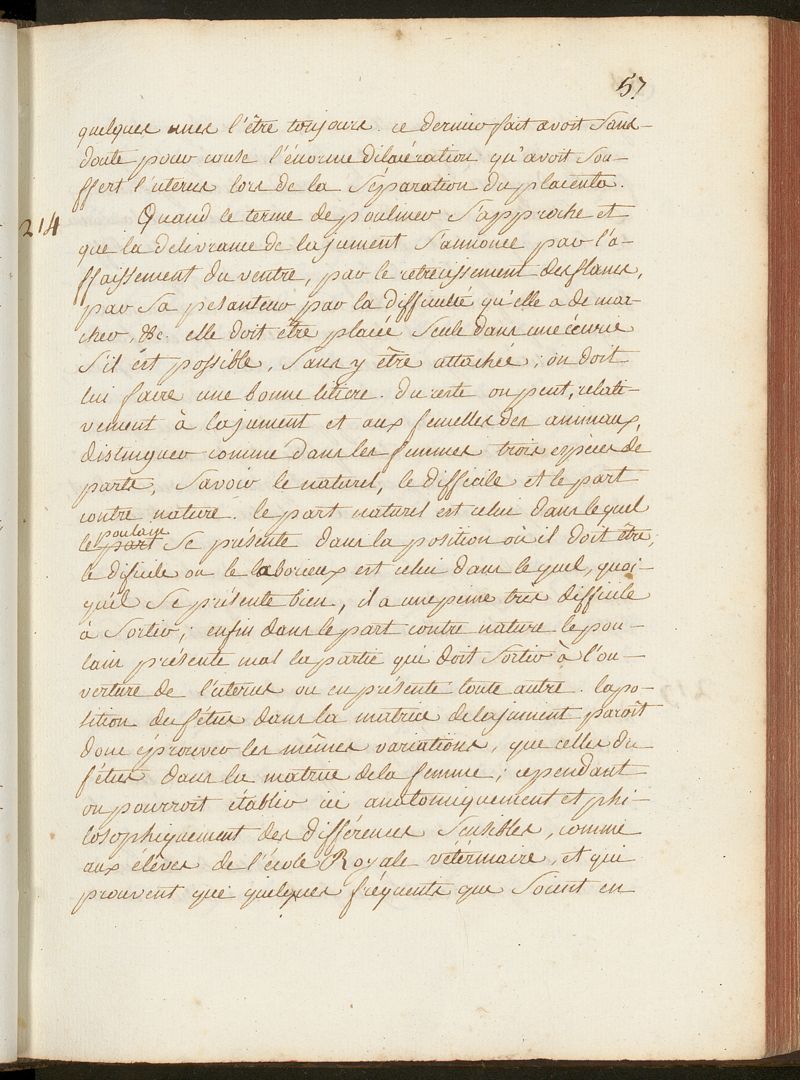 57
quelques unes l'être toujours. ce dernier fait avoit sans
doute pour cause l'énorme dilacération qu'avoit sou-
ffert l'uterus lors de la séparation du placenta.
214
Quand le terme de pouliner s'approche et
que la delivrance de la jument s'annonce par l'a-
ffaissement du ventre, par le retrecissement des flancs,
par sa pesanteur par la difficulté qu'elle a de mar-
cher, &c. elle doit être placée seule dans une écurie
s'il est possible, sans y être attachée; on doit
lui faire une bonne litiere. du reste on peut, relati-
vement à la jument et aux femelles des animaux,
distinguer comme dans les femmes trois espèces de
parts, savoir le naturel, le difficile et le part
contre nature. le part naturel est celui dans lequel
poulain
le part se présente dans la position où il doit être;
le dificile ou le laborieux est celui dans le quel, quoi-
qu'il se présente bien, il a une peine tres difficile
à sortir; enfin dans le part contre nature le pou-
lain présente mal la partie qui doit sortir à l'ou-
verture de l'uterus ou en présente toute autre. la po-
sition du fétus dans la matrice de la jument paroît
donc éprouver les mêmes variations, que celles du
fétus dans la matrice de la femme; cependant
on pourroit établir ici anatomiquement et phi-
losophiquement des différences sensibles, comme
aux élèves de l'école Royale vétérinaire, et qui
prouvent que quelques fréquents que soient en